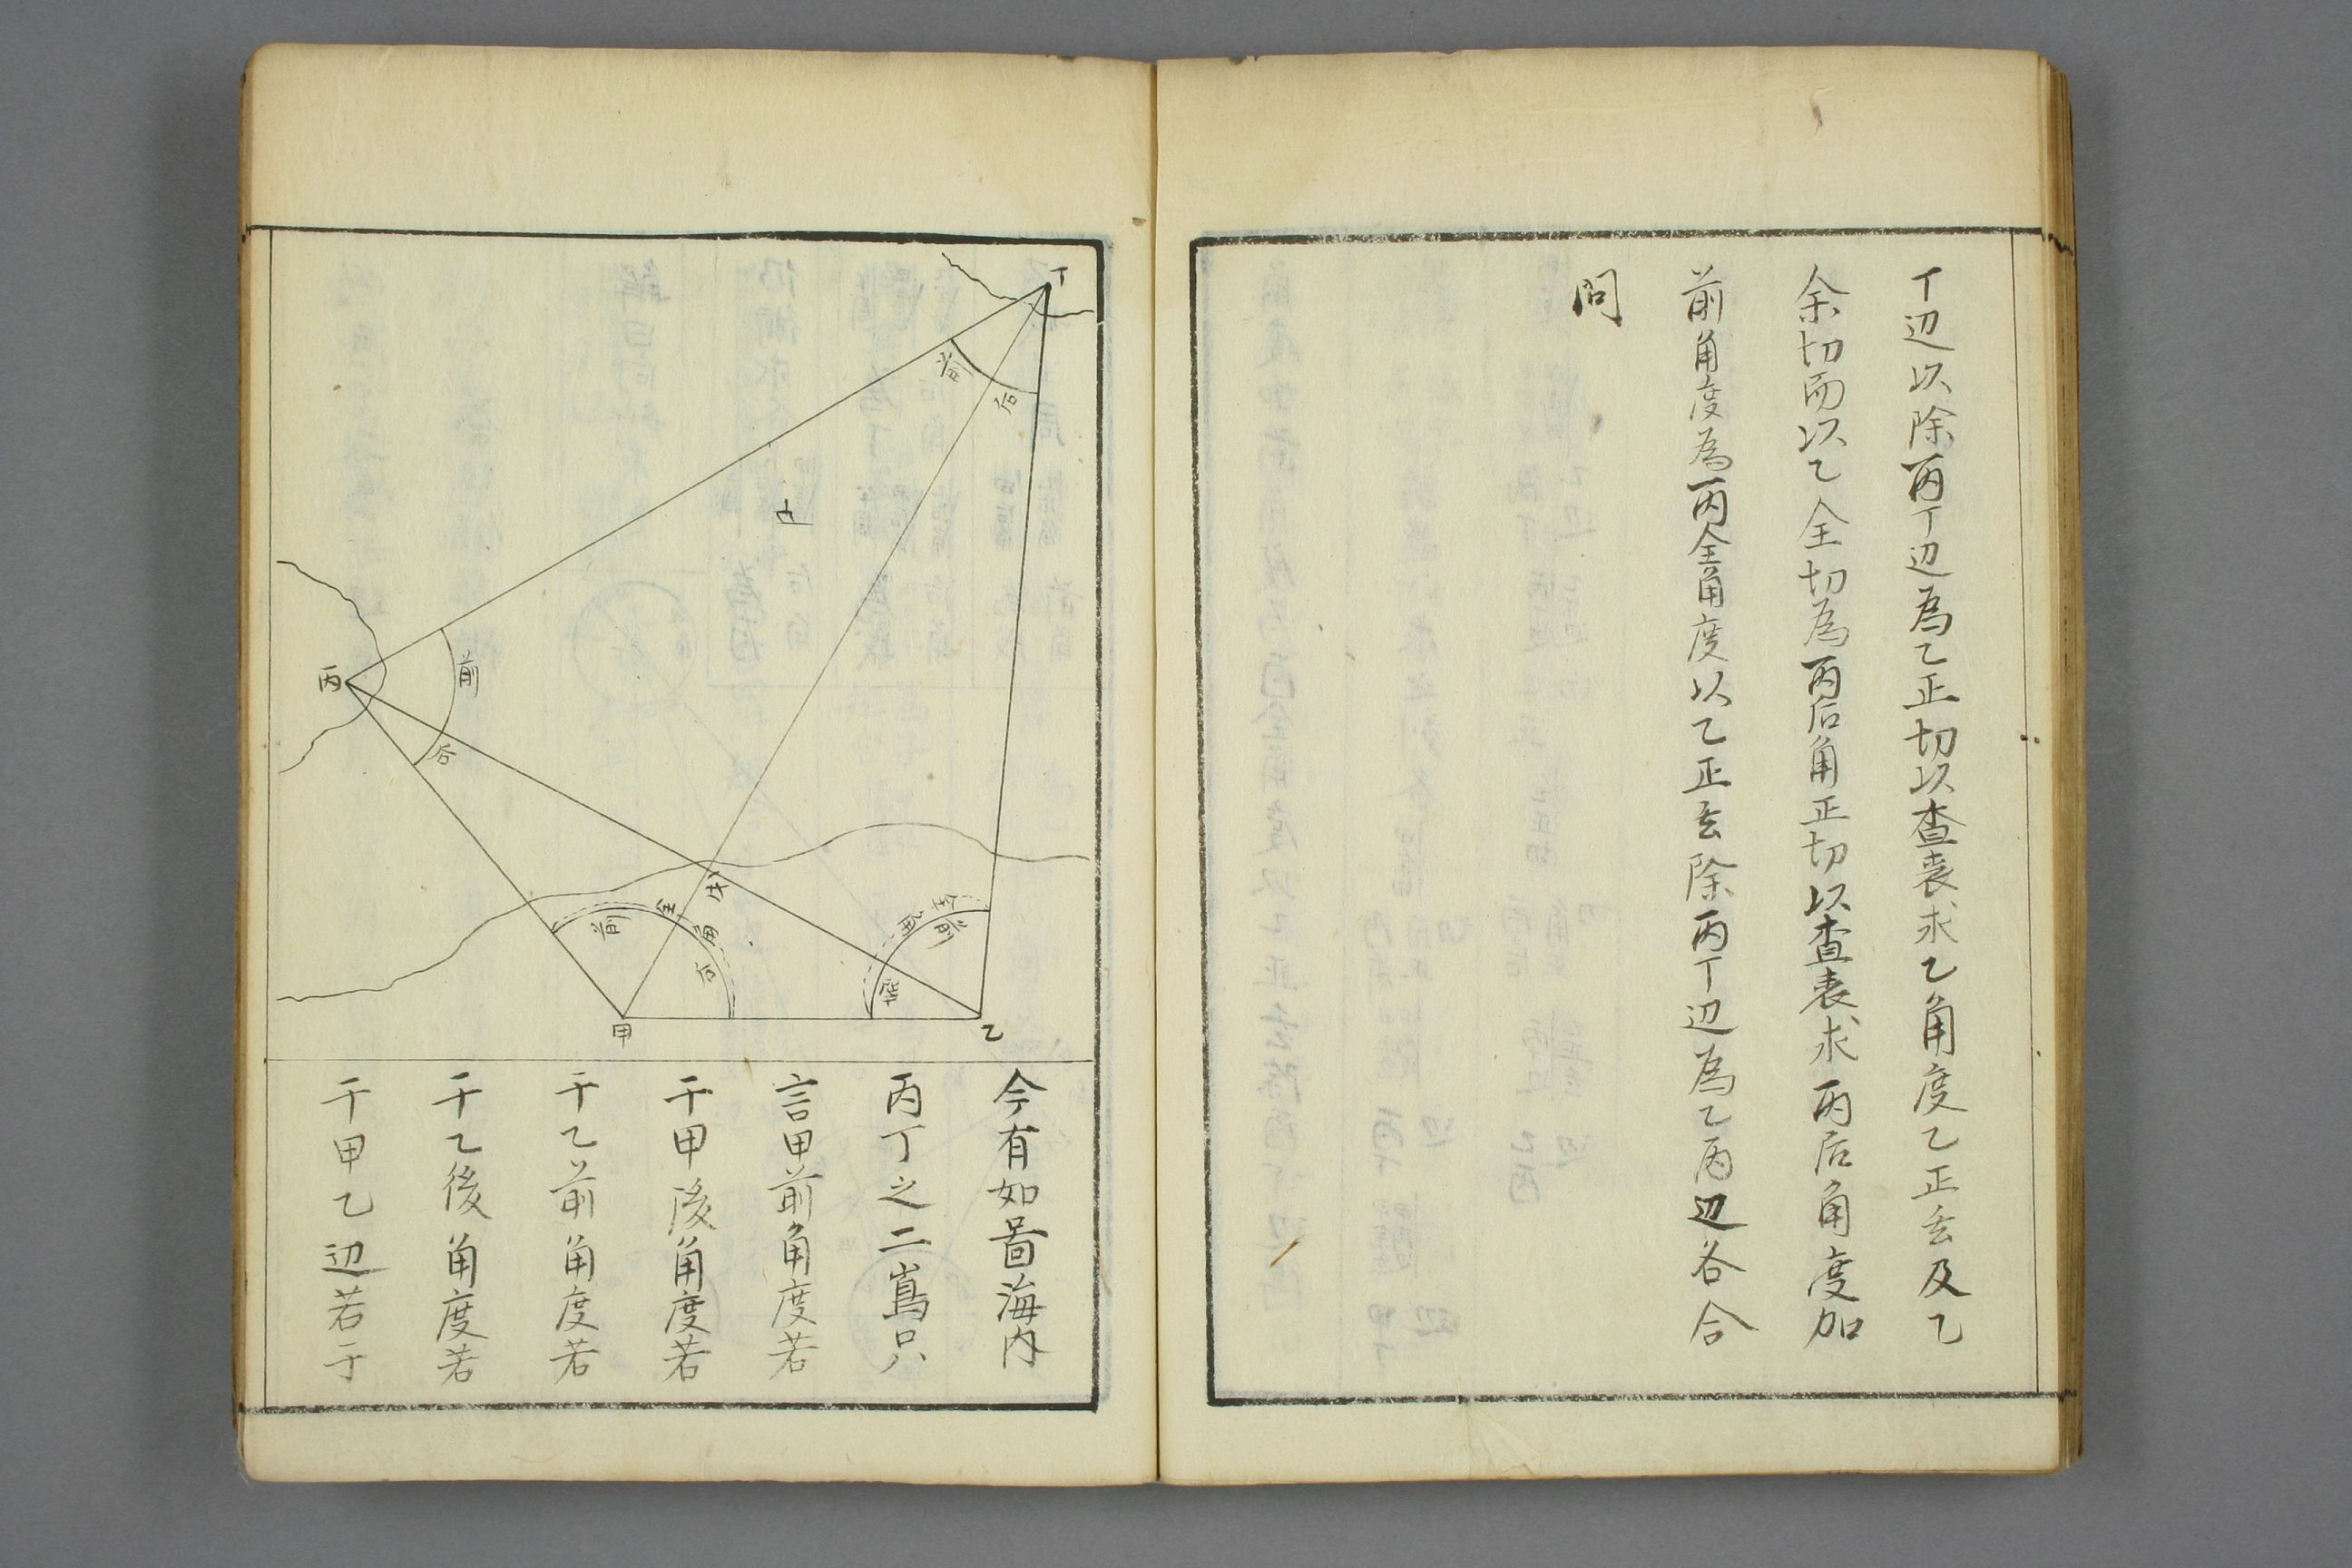 丁辺以除丙丁辺為乙正切以査表求乙角度乙正玄及乙
余切而以乙全切為丙后角正切以査表求丙后角度加
前角度為丙全角度以乙正玄除丙丁辺為乙丙辺各合
問
丁
前
后
丙
前
后
前
全
角
后
甲
前
乙
今有如啚海内
丙丁之二嶌只
言甲前角度若
干甲後角度若
干乙前角度若
干乙後角度若
干甲乙辺若干